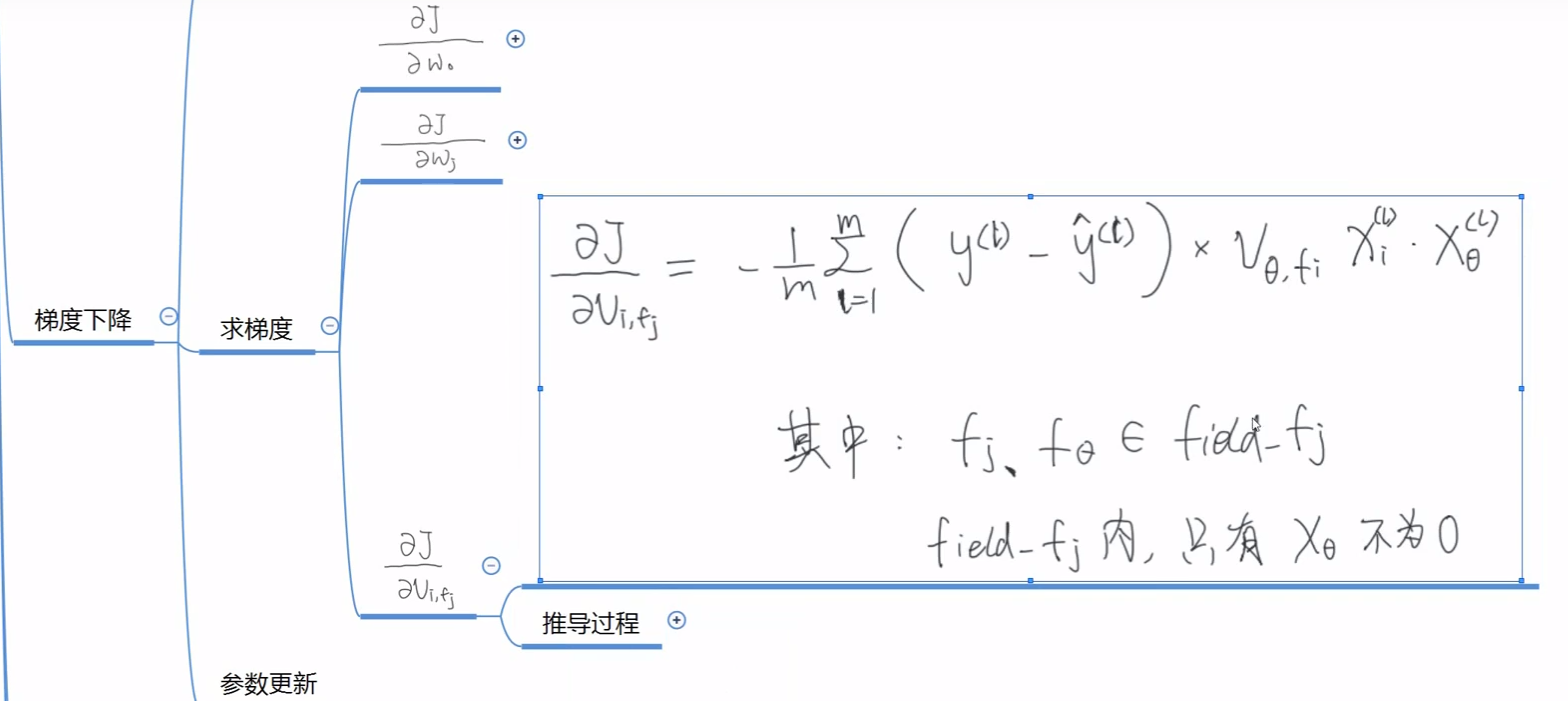 ∂J
∂w₀
∂J
∂wⱼ
梯度下降
求梯度
∂J/∂v_{i,fj} = -1/m ∑_{l=1}^{m} ( y^{(l)} - ŷ^{(l)} ) × v_{θ,fi} x_i^{(l)} · x_θ^{(l)}
其中: fj、fθ ∈ field-fj
field-fj 内, 只有 xθ 不为0
∂J
∂v_{i,fj}
推导过程
参数更新